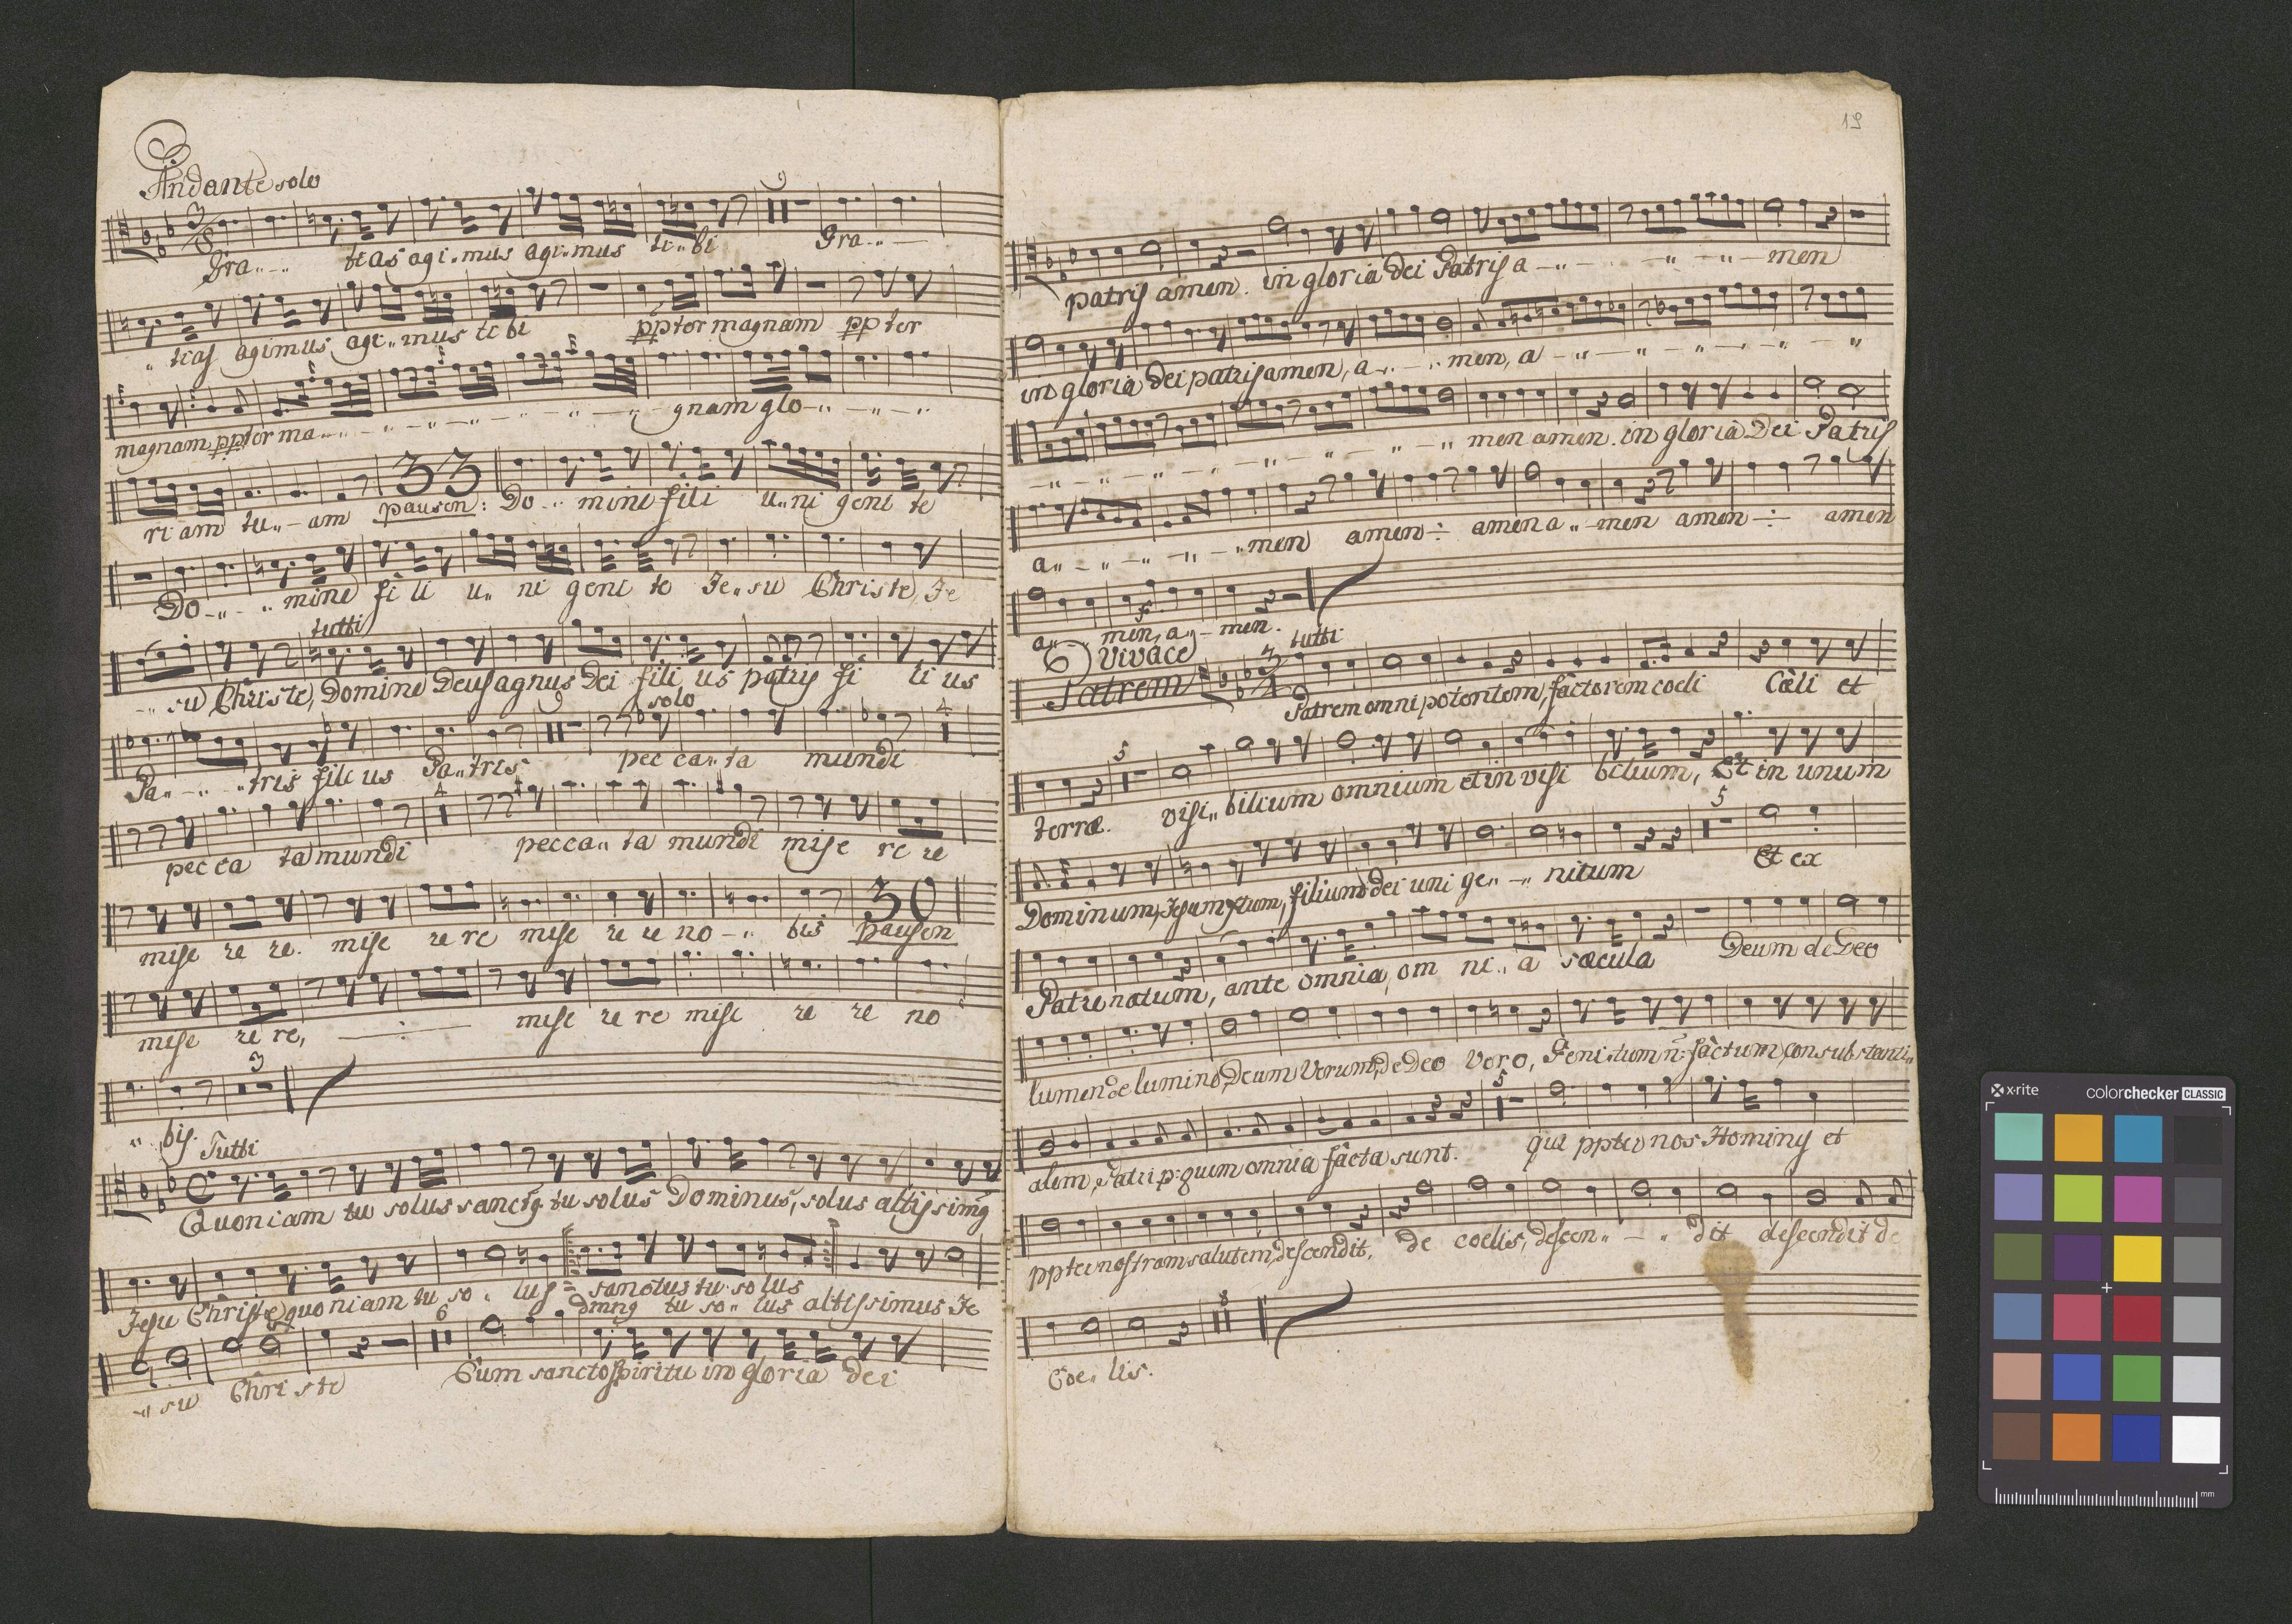 Andante solo
Gra..-.. tias agi..mus agi..mus ti..bi 9 Gra..-
.. tias agimus agi..mus tibi ppter magnam ppter
magnam ppter ma..-..-..-..-..-..-gnam glo-..-..-..
ri am tu..-am 33 pausen: Do.. mine fili u..ni geni te
Do-..-..mine fi li u.. ni geni te Je..su Christe, Je
tutti
-.. su Christe, Domine Deus agnus Dei fili us patris fi li us
solo
Pa..-..-..tris filius Pa..tris 9 pec ca..ta mundi 4
pec ca ta mundi 4 pecca..ta mundi mise re re
mise re re. mise re re mise re re no-.. bis 30 pausen
mise re re, -:- mise re re mise re re no
.. bis. 3
Tutti
Quoniam tu solus sanctg tu solus Dominus, solus altissimg
Jesu Christe quoniam tu so.. lus sanctus tu solus
dmng tu so..lus altissimus Je
-.. su Chri ste 6 Cum sancto Spiritu in gloria dei
19
patris amen. in gloria dei Patris a-..-..-..-..-men
in gloria dei patris amen, a-..-..men, a-..-..-..-..-..-..
-..-..-..-..-..-..-..-..men amen. in gloria Dei Patris
a..-..-..-..-..men amen -:- amen a..-men amen -:- amen
a.. men, a..-men.
Vivace tutti
Patrem 3/4 Patrem omnipotentem, factorem coeli Cæli et
terræ. 5 visi..bilium omnium et in visi bilium, Et in unum
Dominum, Jesum Xtum, filium dei uni ge..-..nitum 5 Et ex
Patre natum, ante omnia, om ni..a sæcula Deum de Deo
lumen de lumine, Deum Verum, de Deo Vero, Genitum n: factum, consubstanti..
alem, Patri p: quem omnia facta sunt. 5 qui ppter nos Hominis et
ppter nostram salutem, descendit, de coelis, descen..-..dit descendit de
Coe..lis. 8
x-rite colorchecker CLASSIC
mm